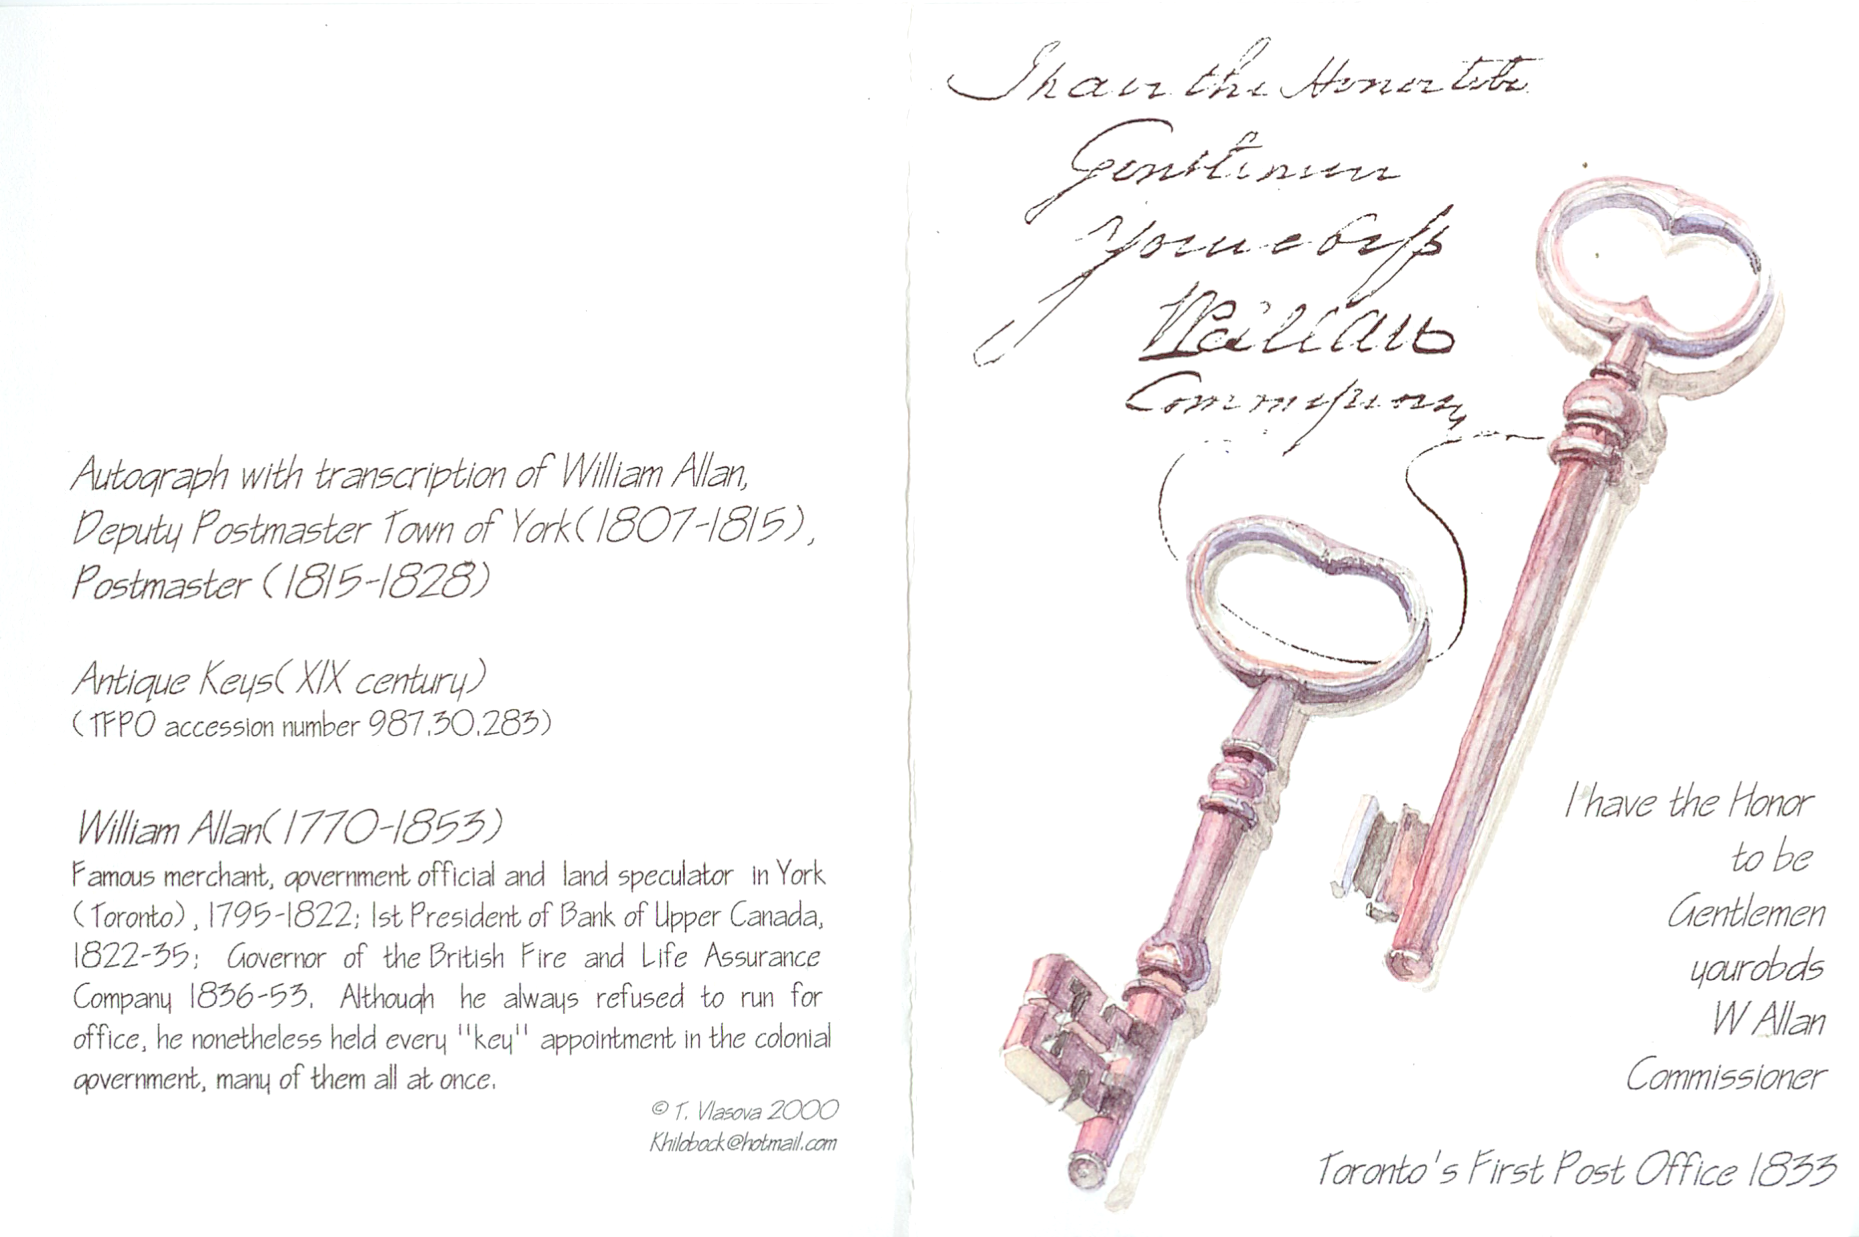 Autograph with transcription of William Allan,
Deputy Postmaster Town of York(1807-1815),
Postmaster (1815-1828)
Antique Keys(XIX century)
(TFPO accession number 987.30.283)
William Allan(1770-1853)
Famous merchant, government official and land speculator in York
(Toronto), 1795-1822; 1st President of Bank of Upper Canada,
1822-35; Governor of the British Fire and Life Assurance
Company 1836-53. Although he always refused to run for
office, he nonetheless held every "key" appointment in the colonial
government, many of them all at once.
© T. Vlasova 2000
Khlobock@hotmail.com
I have the Honor to be
Gentlemen
Your obds
W Allan
Commissioner
I have the Honor
to be
Gentlemen
yourobds
W Allan
Commissioner
Toronto's First Post Office 1833